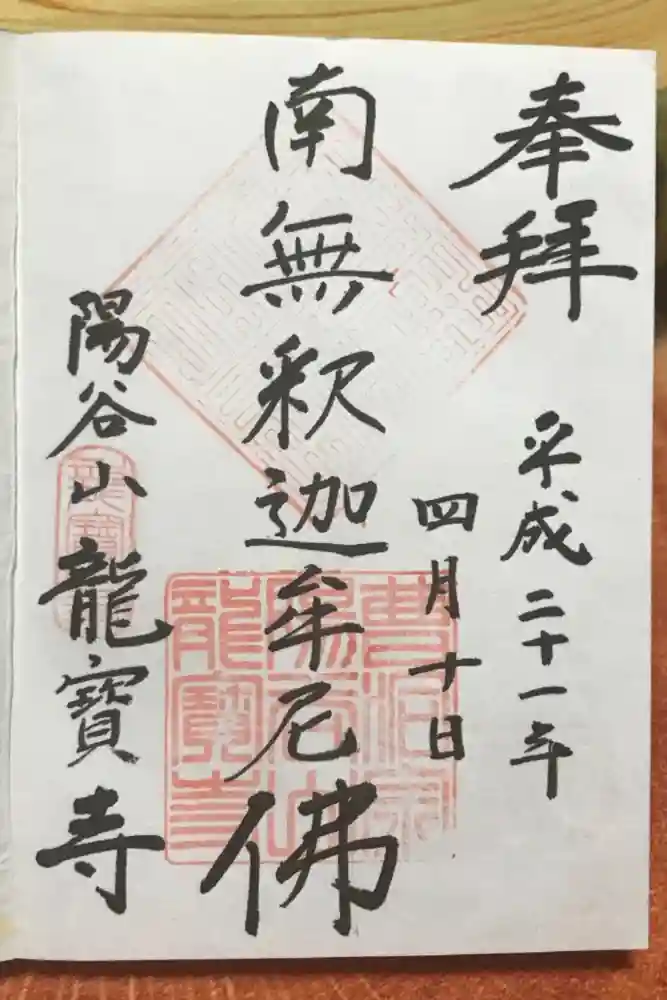 奉拝
平成二十一年
四月十日
南無釈迦牟尼佛
陽谷山龍寶寺
曹洞宗
陽谷山
龍寶寺